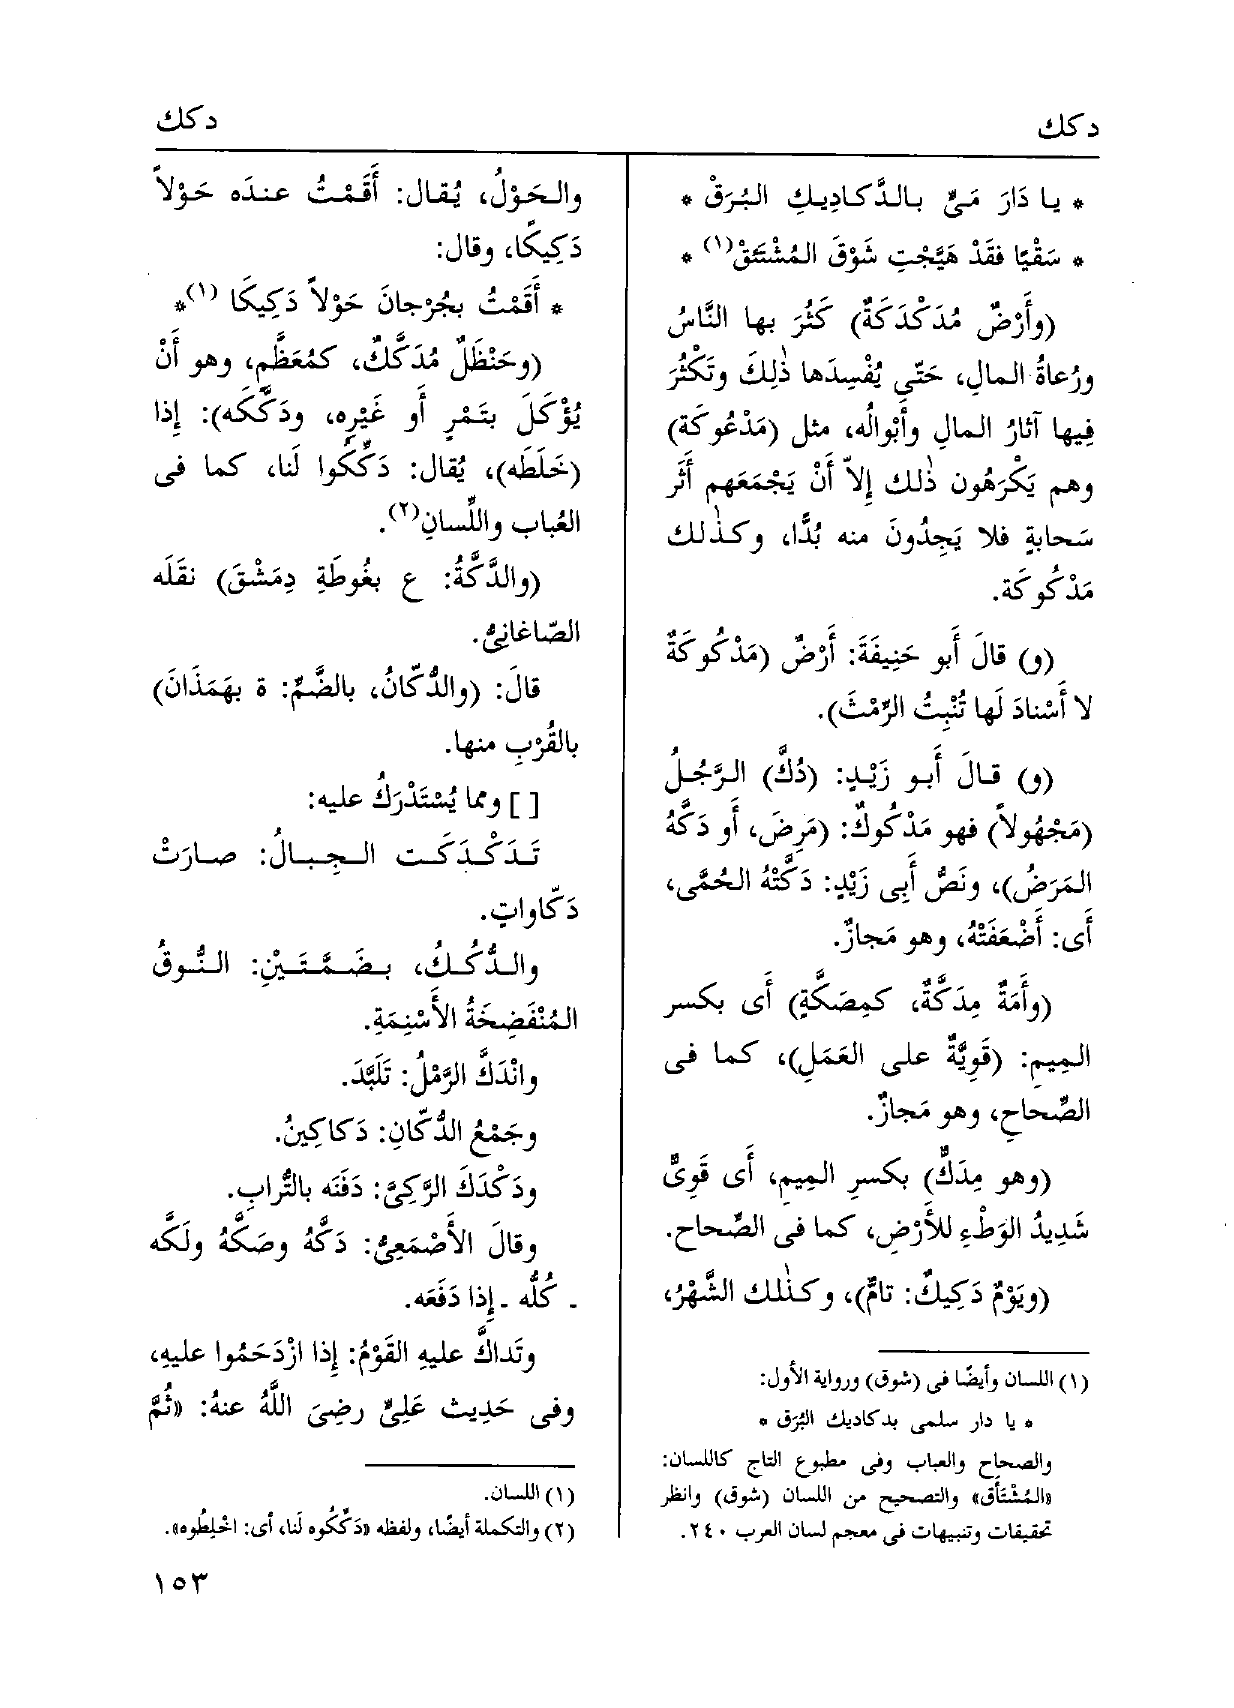 دكك
دكك
* يا دَارَ مَيٍّ بالدَّكادِيكِ البُرَقْ *
* سَقْيًا فقَدْ هَيَّجْتِ شَوْقَ المُشْتَئِقْ(١) *
(وأَرْضٌ مُدَكْدَكَةٌ) كَثُرَ بها النَّاسُ
ورُعاةُ المالِ، حَتّى يُفْسِدَها ذٰلِكَ وتَكْثُرَ
فِيها آثارُ المالِ وأَبْوالُه، مثل (مَدْعُوكَة)
وهم يَكْرَهُون ذٰلك إِلاّ أَنْ يَجْمَعَهم أَثَر
سَحابةٍ فلا يَجِدُونَ منه بُدًّا، وكذٰلك
مَدْكُوكَة.
(و) قالَ أَبو حَنِيفَةَ: أَرْضٌ (مَدْكُوكَةٌ
لا أَسْنادَ لَها تُنْبِتُ الرِّمْثَ).
(و) قالَ أَبو زَيْدٍ: (دُكَّ) الرَّجُلُ
(مَجْهُولاً) فهو مَدْكُوكٌ: (مَرِضَ، أَو دَكَّهُ
المَرَضُ)، ونَصُّ أَبِى زَيْدٍ: دَكَّتْهُ الحُمَّى،
أَى: أَضْعَفَتْهُ، وهو مَجازٌ.
(وأَمَةٌ مِدَكَّةٌ، كمِصَكَّةٍ) أَى بكسر
المِيم: (قَوِيَّةٌ على العَمَلِ)، كما فى
الصِّحاحِ، وهو مَجازٌ.
(وهو مِدَكٌّ) بكسرِ المِيم، أَى قَوِىٌّ
شَدِيدُ الوَطْءِ للأَرْضِ، كما فى الصِّحاح.
(ويَوْمٌ دَكِيكٌ: تامٌّ)، وكذٰلك الشَّهْرُ،
(١) اللسان وأيضًا فى (شوق) ورواية الأول:
* يا دار سلمى بدكاديك البُرَق *
والصحاح والعباب وفى مطبوع التاج كاللسان:
«المُشْتَأَق» والتصحيح من اللسان (شوق) وانظر
تحقيقات وتنبيهات فى معجم لسان العرب ٢٤٠.
والحَوْلُ، يُقال: أَقَمْتُ عندَه حَوْلاً
دَكِيكًا، وقال:
* أَقَمْتُ بجُرْجانَ حَوْلاً دَكِيكَا (١)*
(وحَنْظَلٌ مُدَكَّكٌ، كمُعَظَّمٍ، وهو أَنْ
يُؤْكَلَ بتَمْرٍ أَو غَيْرِه، ودَكَّكَه): إِذا
(خَلَطَه)، يُقال: دَكِّكُوا لَنا، كما فى
العُباب واللِّسانِ(٢).
(والدَّكَّةُ: ع بغُوطَةِ دِمَشْقَ) نقَلَه
الصّاغانِىُّ.
قالَ: (والدُّكّانُ، بالضَّمِّ: ة بهَمَذَانَ)
بالقُرْبِ منها.
[ ] ومما يُسْتَدْرَكُ عليه:
تَدَكْدَكَت الجِبالُ: صارَتْ
دَكّاواتٍ.
والدُّكُكُ، بضَمَّتَيْنِ: النُّوقُ
المُنْفَضِخَةُ الأَسْنِمَةِ.
وانْدَكَّ الرَّمْلُ: تَلَبَّدَ.
وجَمْعُ الدُّكّانِ: دَكاكِينُ.
ودَكْدَكَ الرَّكِىَّ: دَفَنَه بالتُّرابِ.
وقالَ الأَصْمَعِىُّ: دَكَّهُ وصَكَّهُ ولَكَّه
ـ كُلُّه ـ إِذا دَفَعَه.
وتَداكَّ عليهِ القَوْمُ: إِذا ازْدَحَمُوا عليهِ،
وفى حَدِيث عَلِىٍّ رضِىَ اللَّهُ عنهُ: «ثُمَّ
(١) اللسان.
(٢) والتكملة أيضًا، ولفظه «دَكِّكُوه لَنا، أى: اخْلِطُوه».
١٥٣